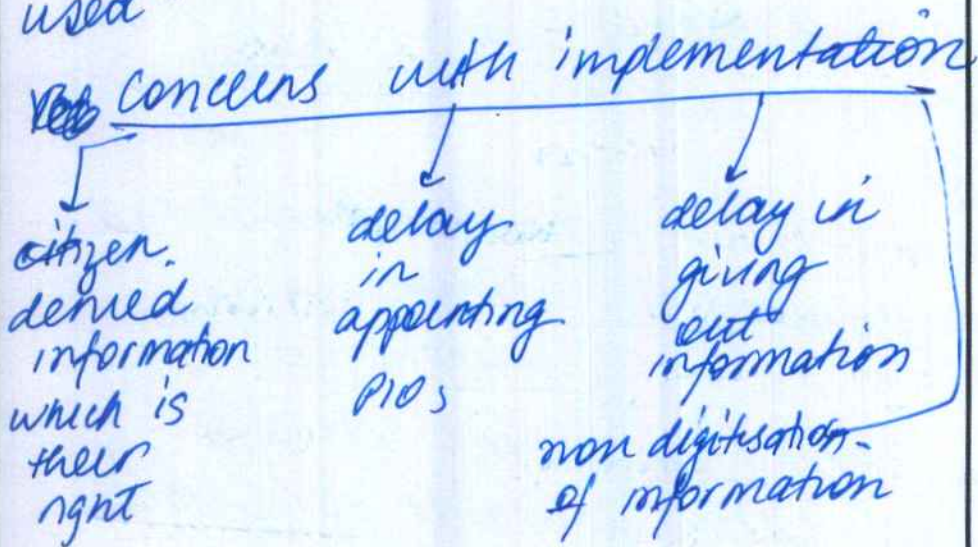 used
Concerns with implementation
citizen
denied
information
which is
their
right
delay
in
appointing
PIOs
delay in
giving
out
information
non digitisation
of information